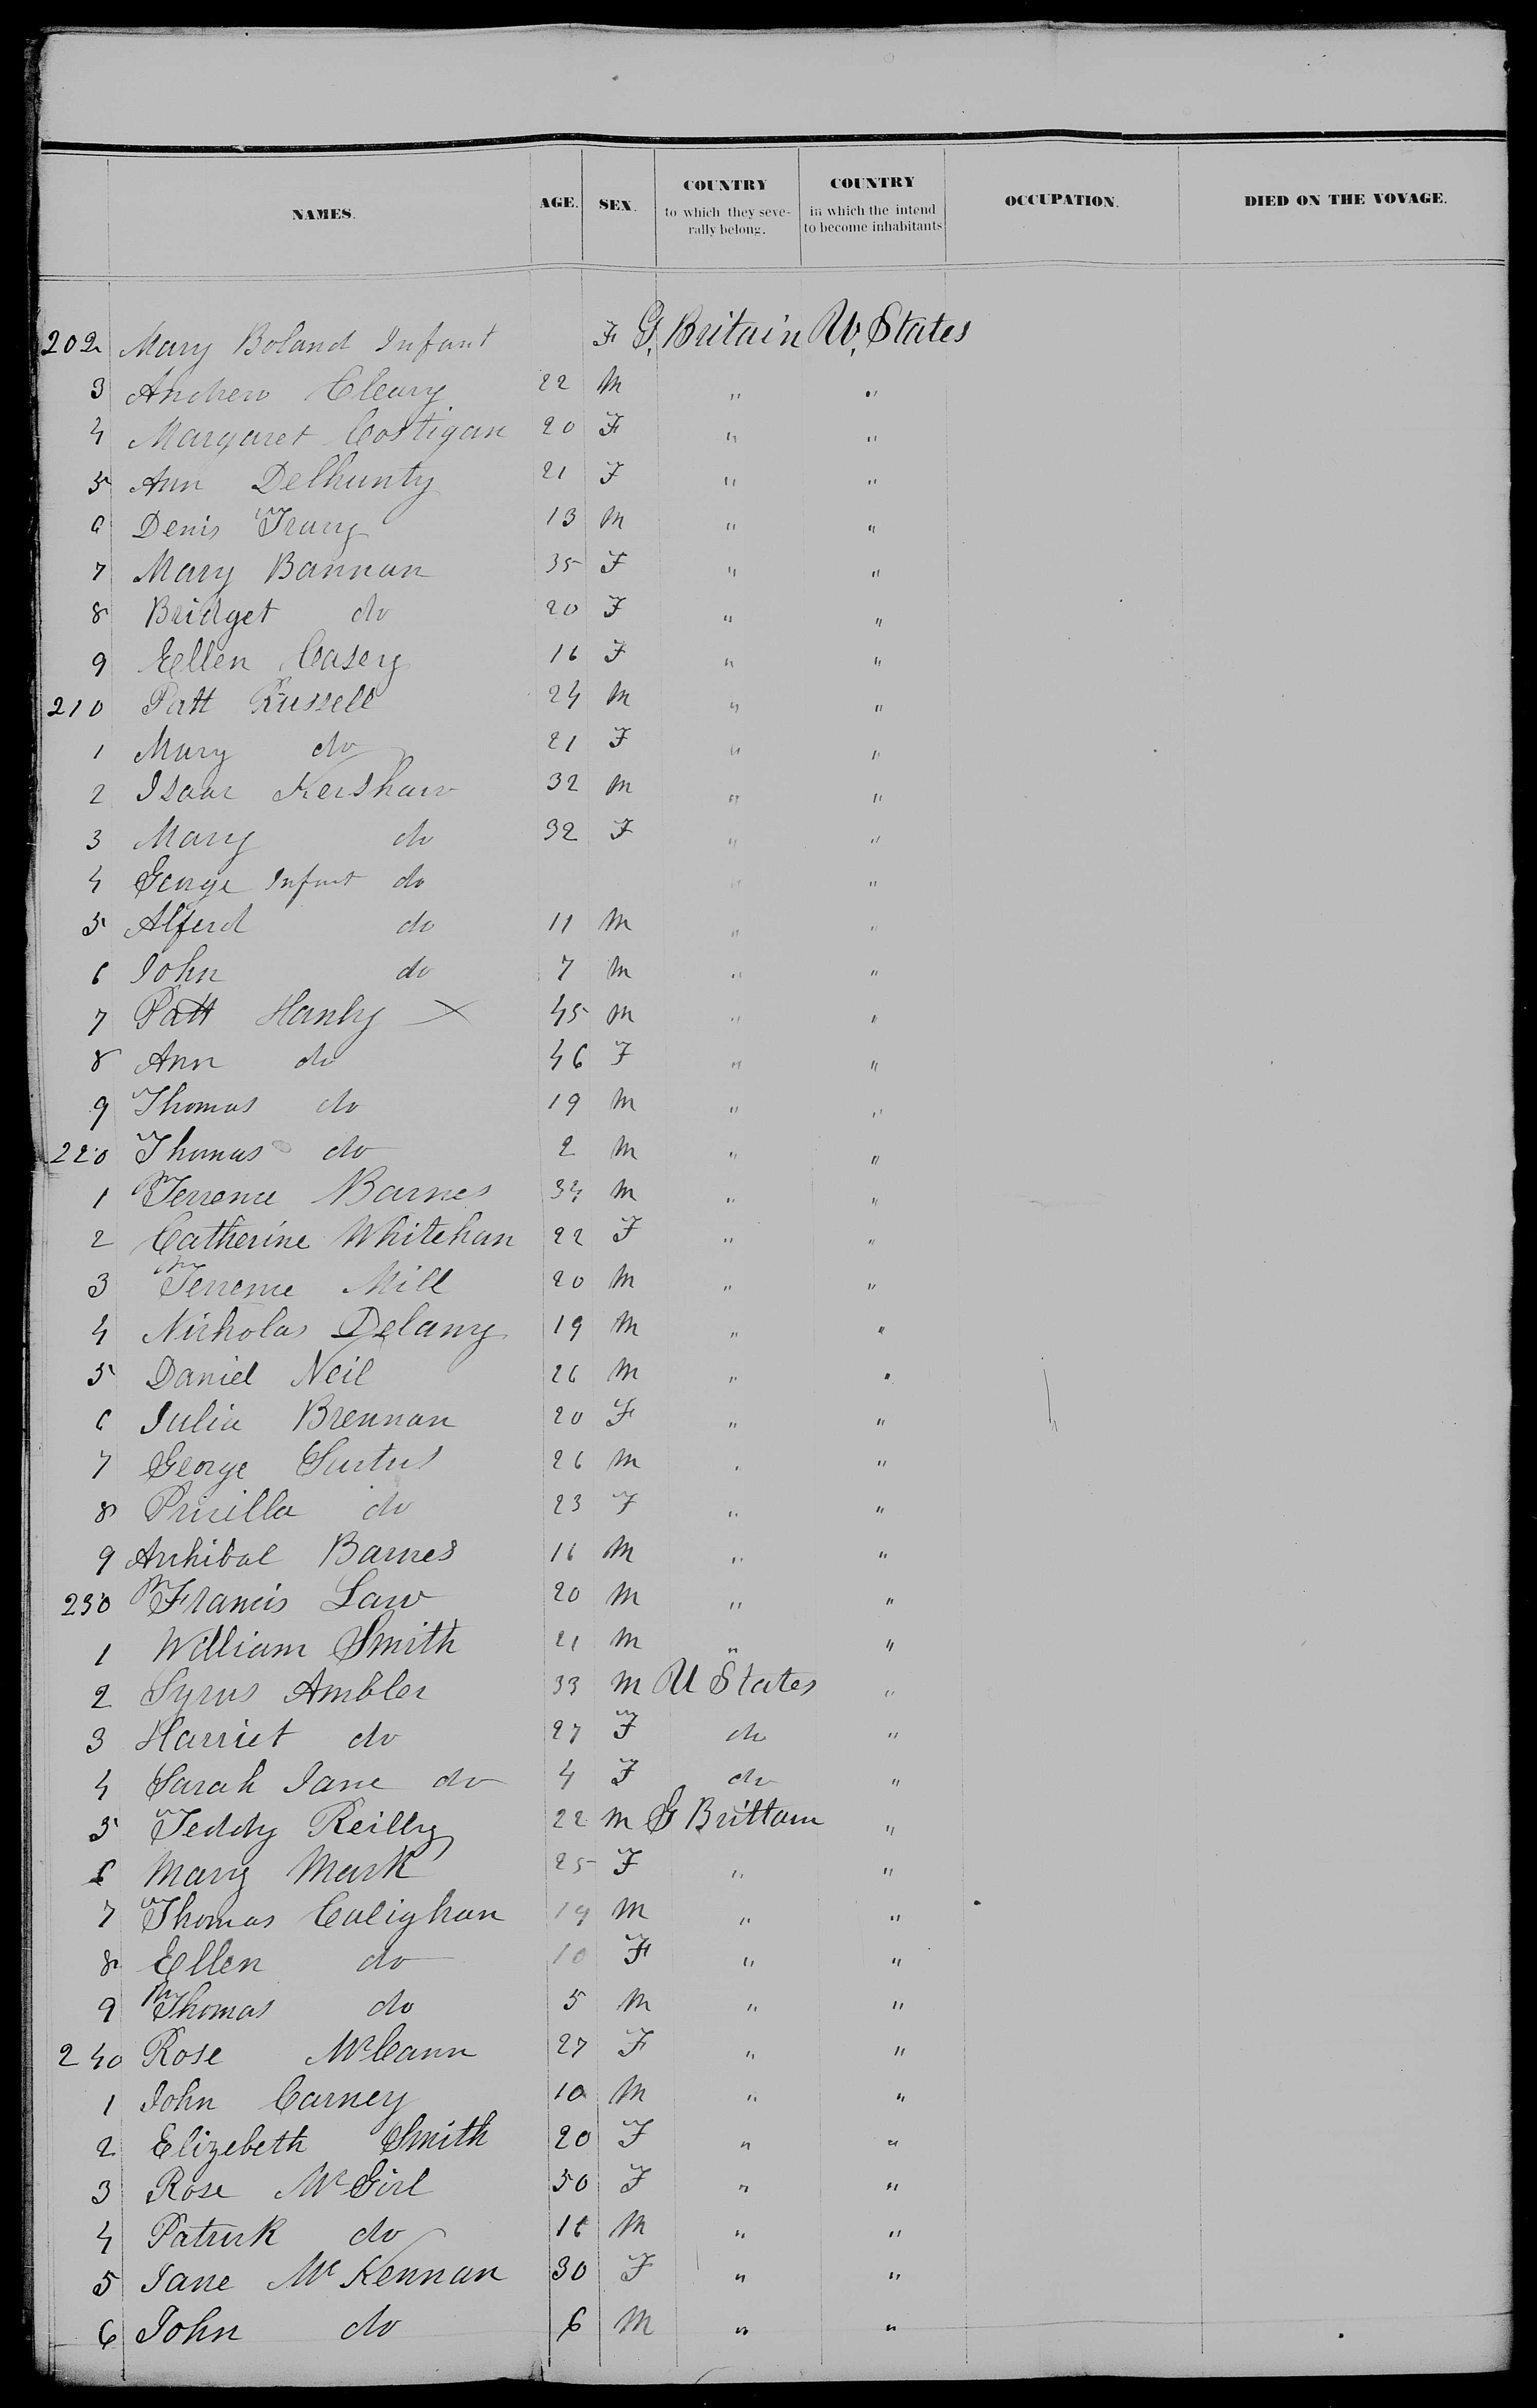 NAMES. AGE. SEX. COUNTRY to which they seve-rally belong. COUNTRY in which the intend to become inhabitants OCCUPATION. DIED ON THE VOYAGE.
202 Mary Boland Infant F G. Britain U. States
3 Andrew Cleary 22 M " "
4 Margaret Costigan 20 F " "
5 Ann Delhunty 21 F " "
6 Denis Tracy 13 M " "
7 Mary Bannan 35 F " "
8 Bridget do 20 F " "
9 Ellen Casey 16 F " "
210 Patt Russell 24 M " "
1 Mary do 21 F " "
2 Isaac Kershaw 32 M " "
3 Mary do 32 F " "
4 George Infant do " "
5 Alferd do 11 M " "
6 John do 7 M " "
7 Patt Hanly X 45 M " "
8 Ann do 46 F " "
9 Thomas do 19 M " "
220 Thomas do 2 M " "
1 Terrence Barnes 34 M " "
2 Catherine Whitehan 22 F " "
3 Terrence Mill 20 M " "
4 Nicholas Delany 19 M " "
5 Daniel Neil 26 M " "
6 Julia Brennan 20 F " "
7 George 26 M " "
8 Pricilla do 23 F " "
9 Archibal Barnes 16 M " "
230 Francis Law 20 M " "
1 William Smith 21 M " "
2 Syrus Ambler 33 M U States "
3 Harriet do 27 F do "
4 Sarah Jane do 4 F do "
5 Teddy Reilly 22 M G Brittain "
6 Mary Mark 25 F " "
7 Thomas Calighan 19 M " "
8 Ellen do 10 F " "
9 Thomas do 5 M " "
240 Rose McCann 27 F " "
1 John Carney 10 M " "
2 Elizebeth Smith 20 F " "
3 Rose McGirl 50 F " "
4 Patrick do 16 M " "
5 Jane McKennan 30 F " "
6 John do 6 M " "